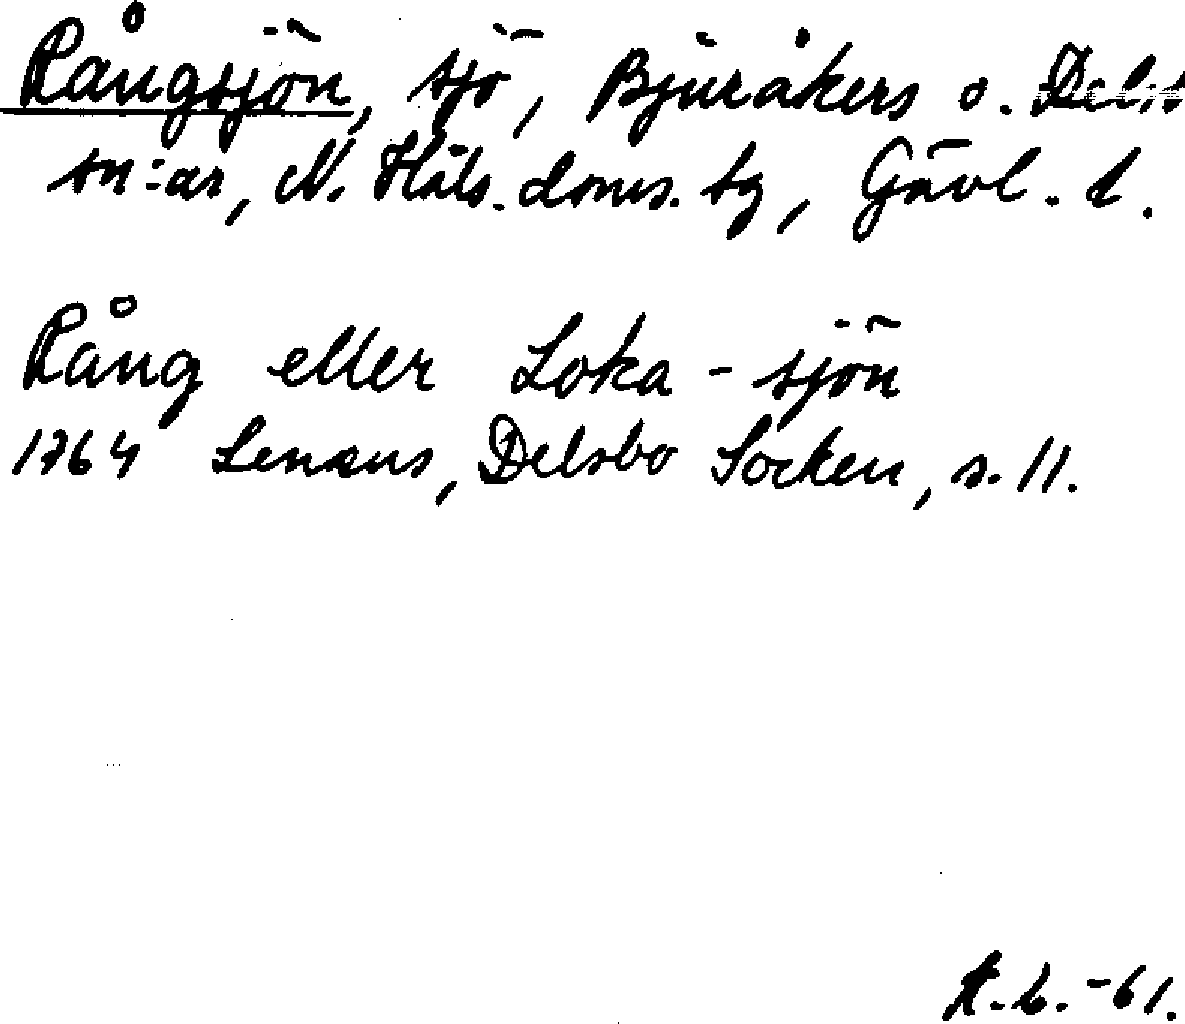 Rångsjön, sjö, Bjuråkers o. Delsb
sn:ar, N. Häls. doms. sg, Gävl. l.
Rång eller Loka-sjön
1764 Lenæus, Delsbo Socken, s. 11.
-61.